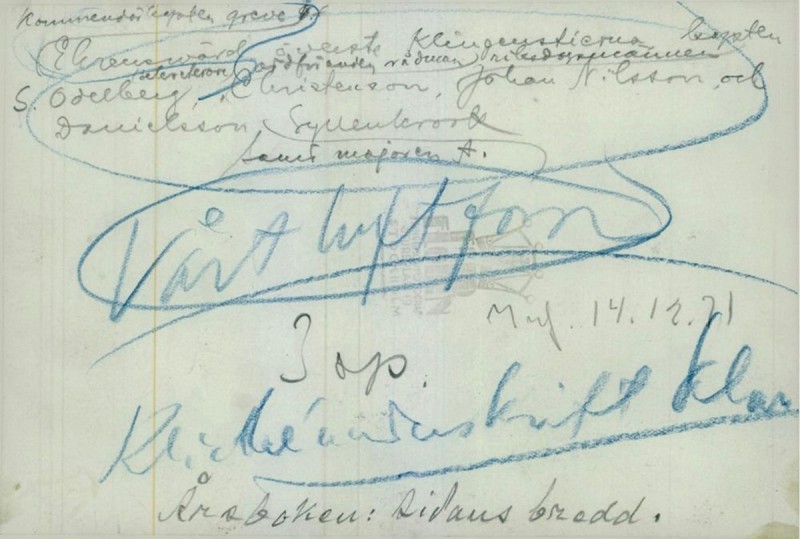 Kommendörkapten greve
Ehrensvärd, överste Klingenstierna, kapten
ordföranden rådman riksdagsmännen
S. Odelberg, Christenson, Johan Nilsson, och
Danielsson, Gyllenkrook
samt majoren A.
Vårt luftförsv
14.12.31
3 sp.
Klichéunderskrift klar
Årsboken: Sidans bredd.